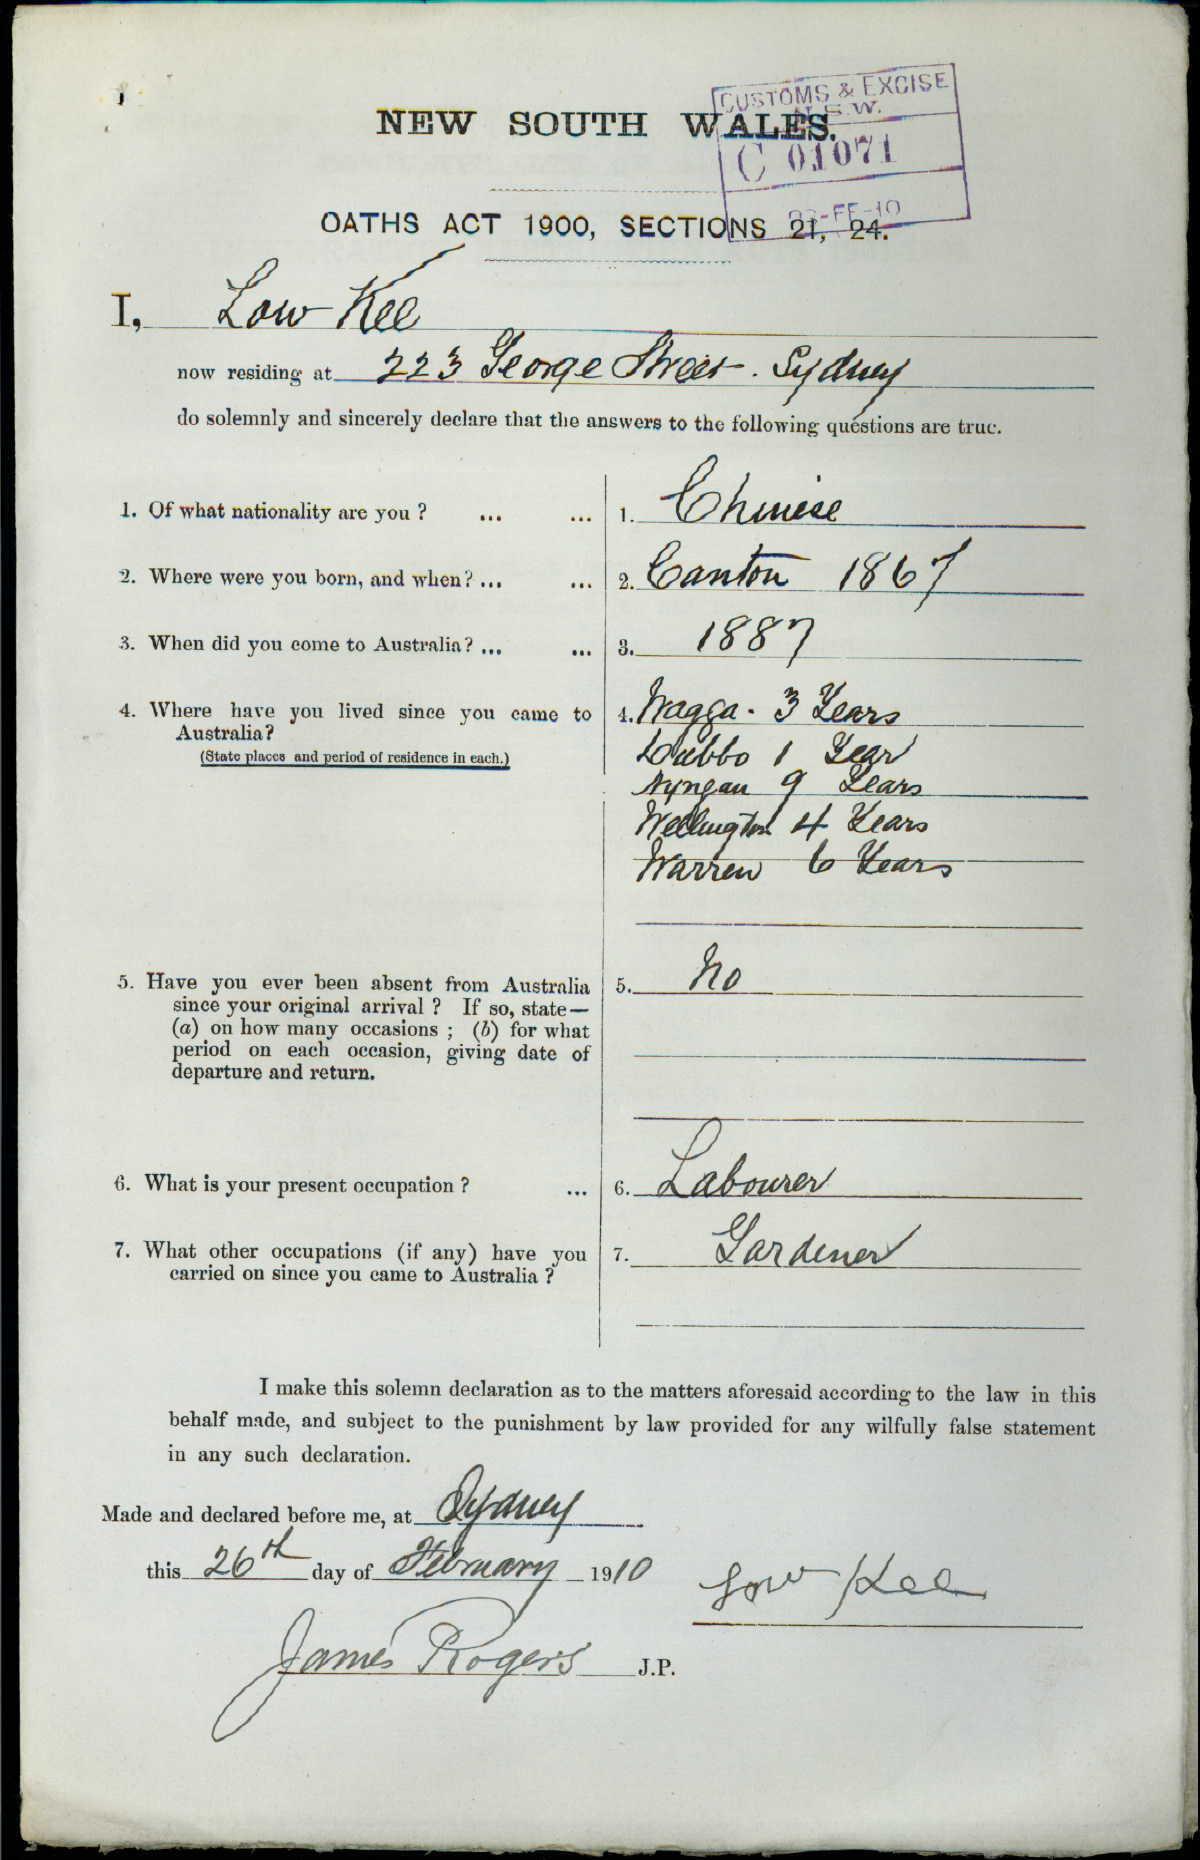 CUSTOMS & EXCISE
N.S.W.
NEW SOUTH WALES.
C 01071
-FE-10
OATHS ACT 1900, SECTIONS 21, 24.
I, Low Kee
now residing at 223 George Street. Sydney
do solemnly and sincerely declare that the answers to the following questions are true.
1. Of what nationality are you ? ... ... 1. Chinese
2. Where were you born, and when? ... ... 2. Canton 1867
3. When did you come to Australia? ... ... 3. 1887
4. Where have you lived since you came to 4. Wagga - 3 Years
Australia?
(State places and period of residence in each.) Dubbo 1 Year
Nyngan 9 Years
Wellington 4 Years
Warren 6 Years
5. Have you ever been absent from Australia 5. No
since your original arrival ? If so, state—
(a) on how many occasions ; (b) for what
period on each occasion, giving date of
departure and return.
6. What is your present occupation ? ... 6. Labourer
7. What other occupations (if any) have you 7. Gardener
carried on since you came to Australia ?
I make this solemn declaration as to the matters aforesaid according to the law in this
behalf made, and subject to the punishment by law provided for any wilfully false statement
in any such declaration.
Made and declared before me, at Sydney
this 26th day of February 1910
Low Kee
James Rogers J.P.